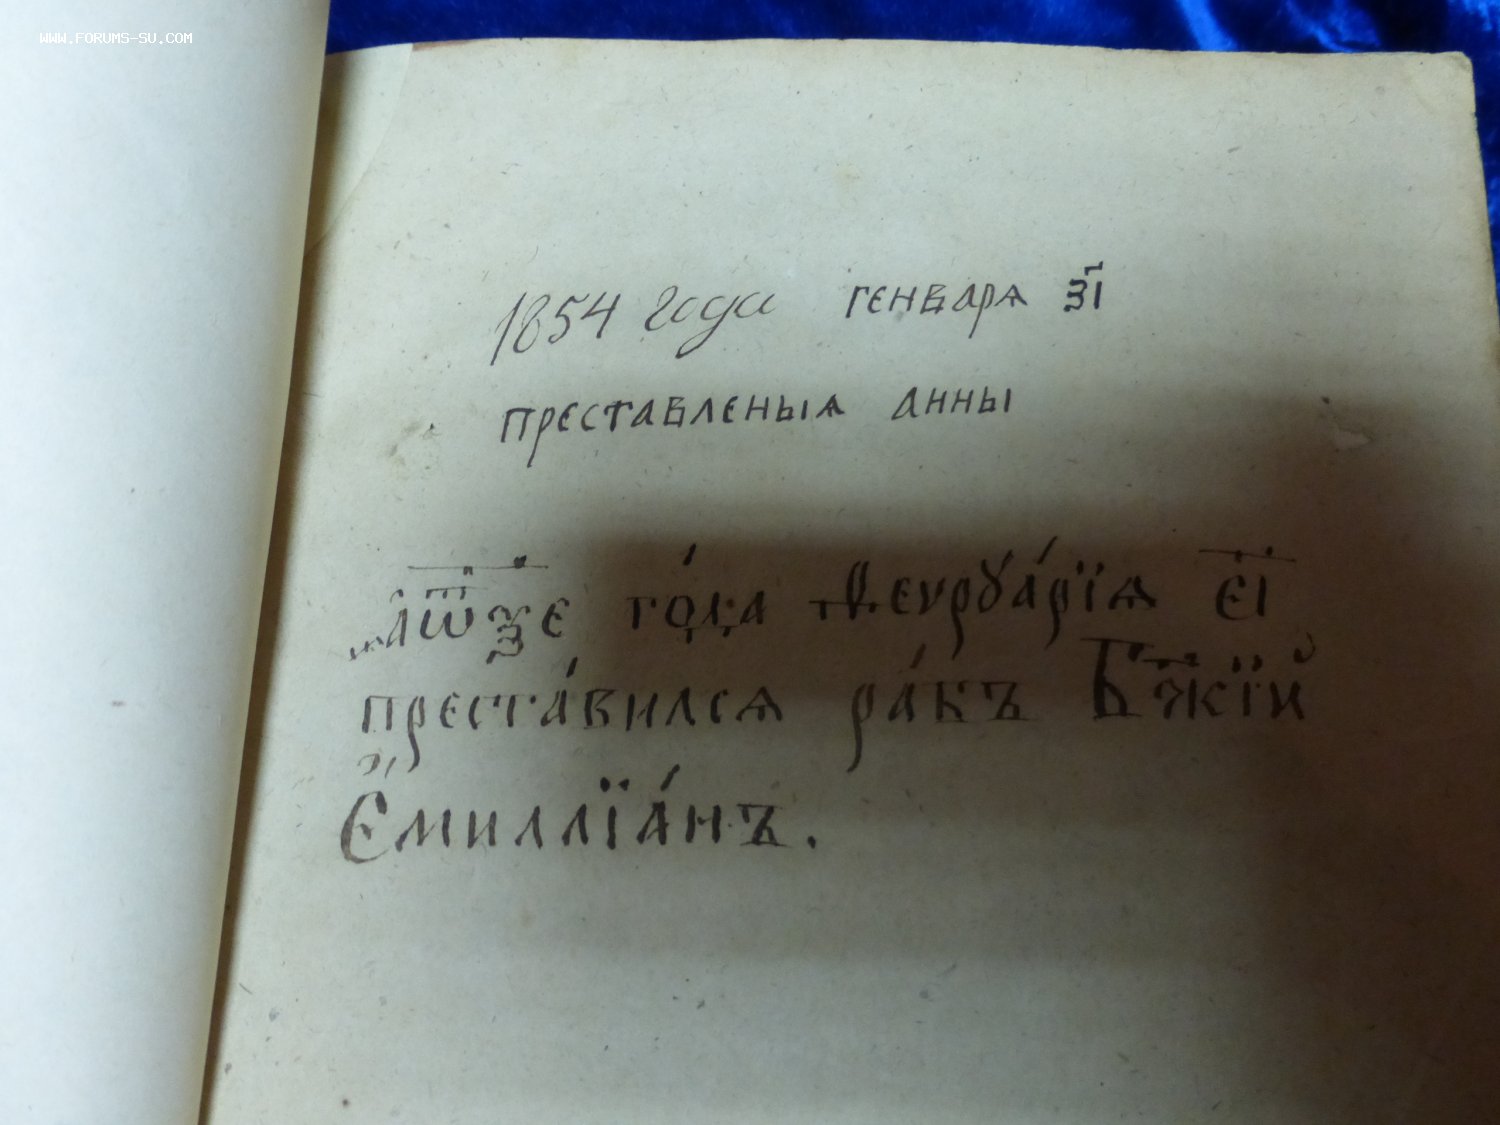 WWW.FORUMS-SU.COM
1854 года генваря з҃і
преставленыѧ анны
҂аѿѯе го́да феѵрꙋа́рїѧ е҃і
преста́вилсѧ ра́бъ Бж҃їй
Є҆миллїа́нъ.